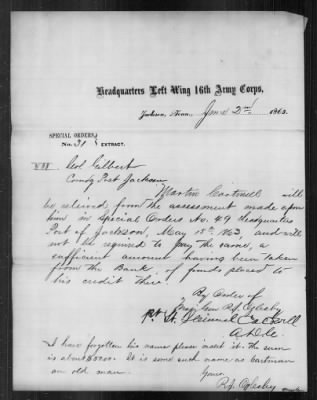 Headquarters Left Wing 16th Army Corps,
Jackson, Tenn. June 2nd 1863.
SPECIAL ORDERS
No. 31 EXTRACT.
Col Gilbert
Comdg Post Jackson
Martin Cartmell will
be relieved from the assessment made upon
him in Special Orders No. 49 Headquarters
Post of Jackson, May 18th 1863, and will
not be required to pay the same, a
sufficient amount having been taken
from the Bank, of funds placed to
his credit there.
By Order of
Maj Gen R. J. Oglesby
A.D.C.
I have forgotten his name please insert it. The sum
is about It is some such name as Cartman
an old man.
Yours
R. J. Oglesby